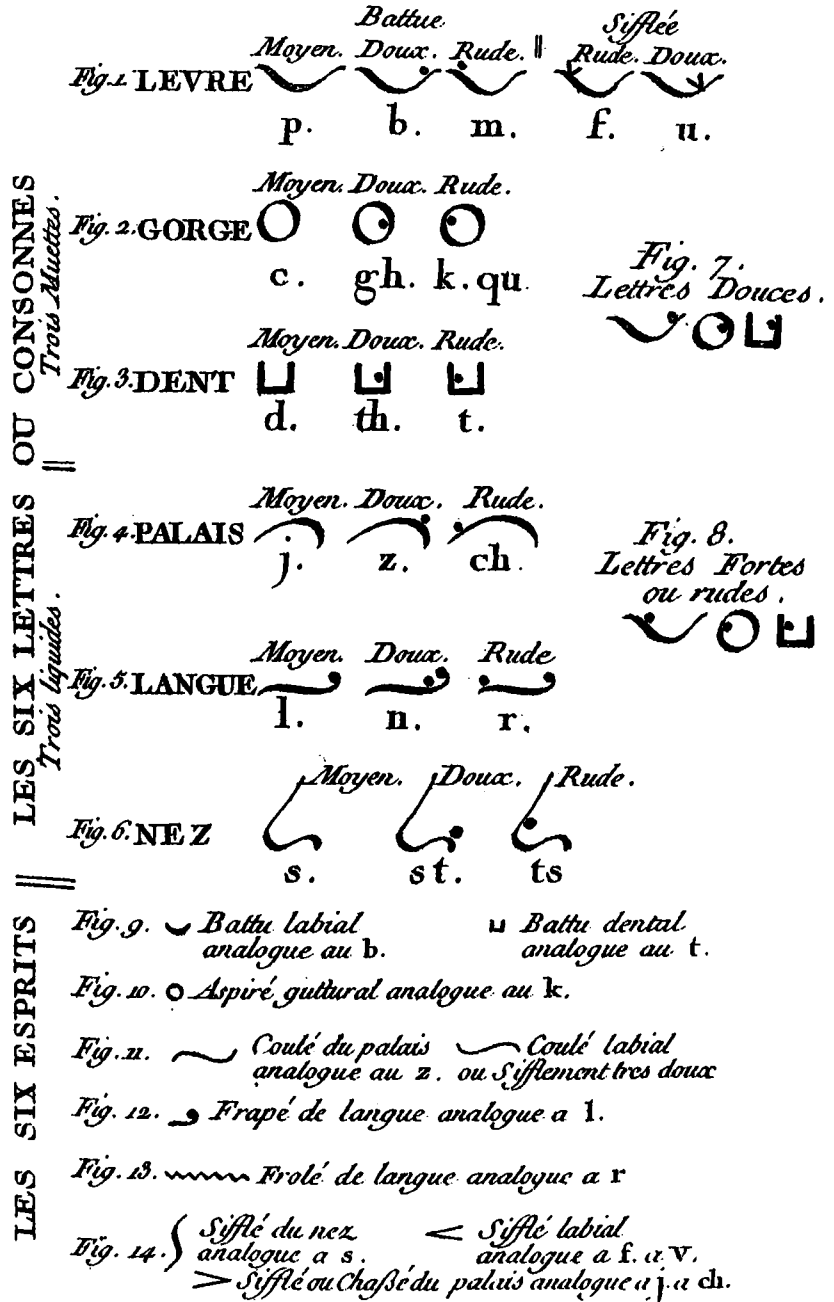 Battue ‖ Sifflée
Moyen. Doux. Rude. Rude. Doux.
Fig. 1. LEVRE
p. b. m. f. u.
LES SIX LETTRES OU CONSONNES
Trois Muettes.
Moyen. Doux. Rude.
Fig. 2. GORGE
c. gh. k. qu.
Moyen. Doux. Rude.
Fig. 3. DENT
d. th. t.
Fig. 7.
Lettres Douces.
Trois liquides.
Moyen. Doux. Rude.
Fig. 4. PALAIS
j. z. ch.
Moyen. Doux. Rude
Fig. 5. LANGUE
l. n. r.
Moyen. Doux. Rude.
Fig. 6. NEZ
s. st. ts
Fig. 8.
Lettres Fortes
ou rudes.
LES SIX ESPRITS
Fig. 9. Battu labial
analogue au b.
Battu dental
analogue au t.
Fig. 10. Aspiré guttural analogue au k.
Fig. 11. Coulé du palais
analogue au z.
Coulé labial
ou Sifflement tres doux
Fig. 12. Frapé de langue analogue a l.
Fig. 13. Frolé de langue analogue a r
Fig. 14. Sifflé du nez
analogue a s.
Sifflé labial
analogue a f. a v.
Sifflé ou Chaßé du palais analogue a j. a ch.